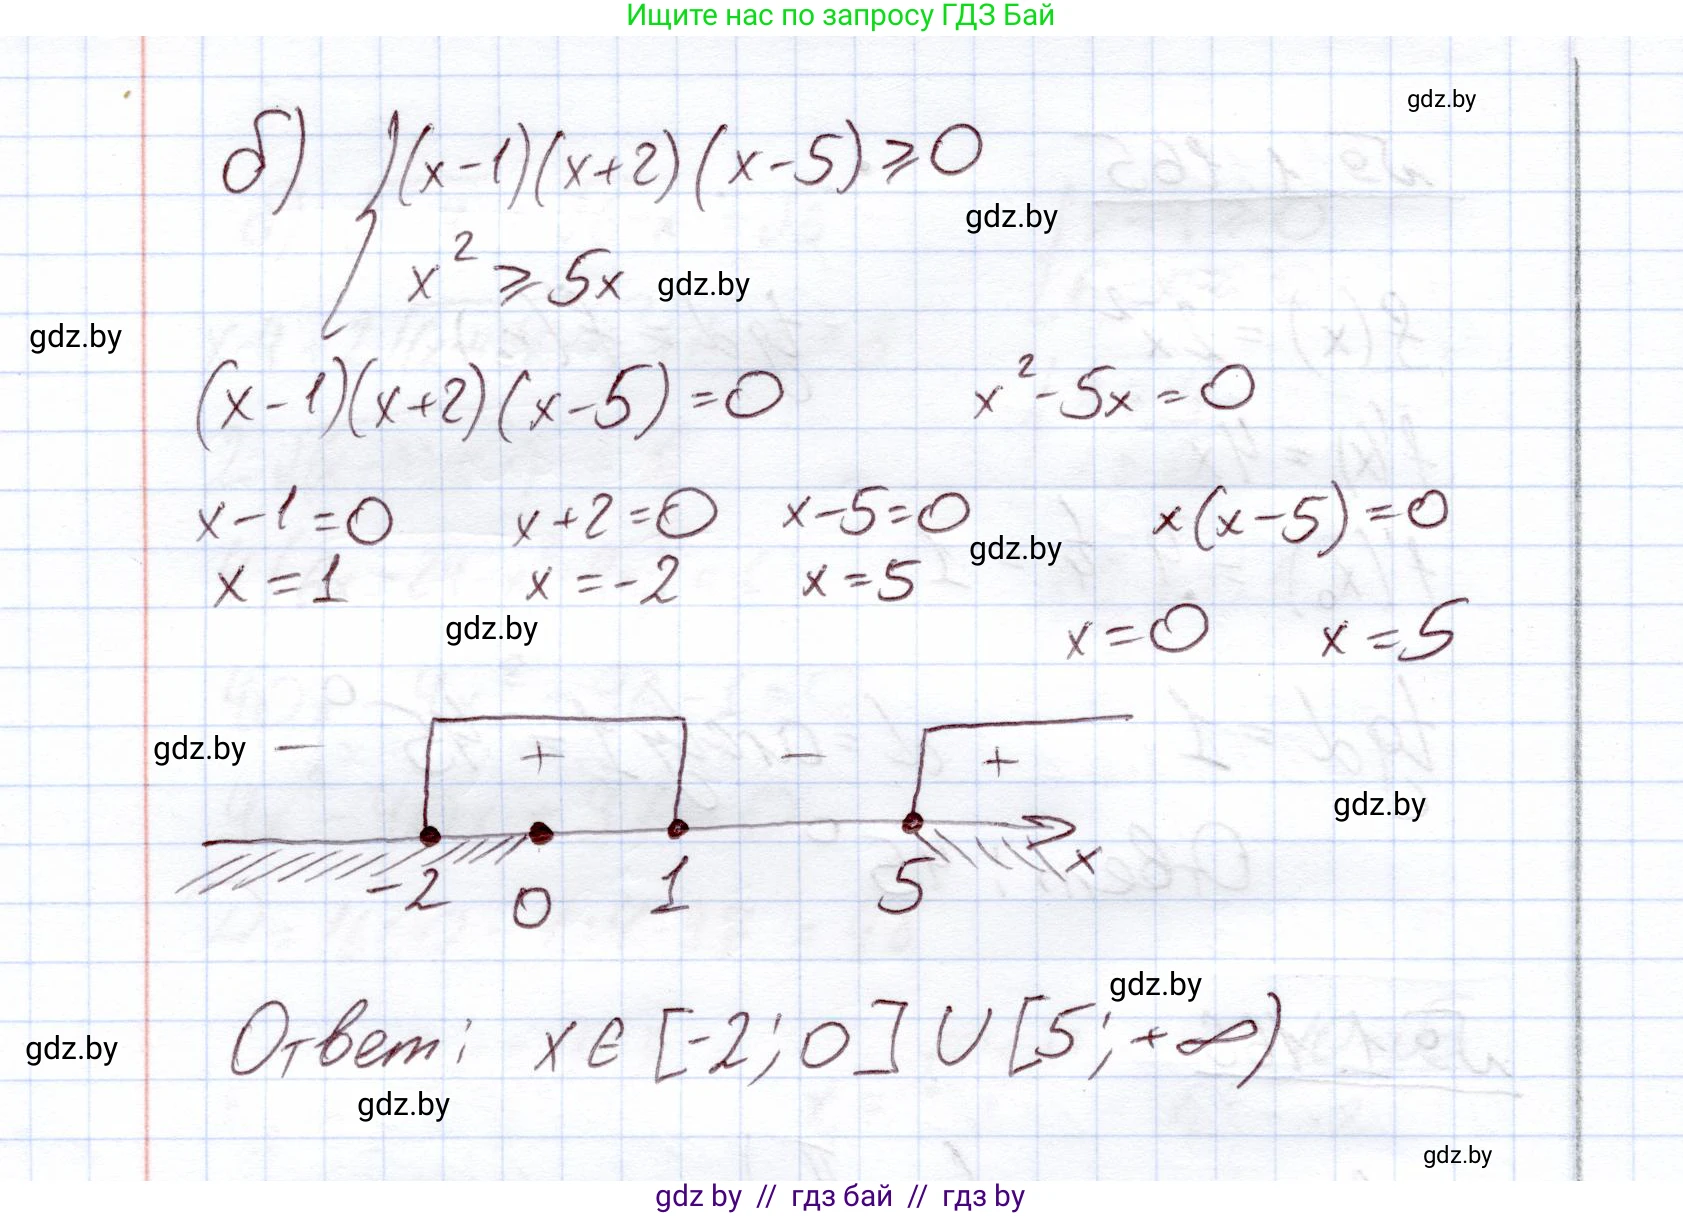 Ищите нас по запросу ГДЗ Бай
gdz.by
б) { (x-1)(x+2)(x-5)⩾0
gdz.by
x² ⩾ 5x gdz.by
gdz.by
(x-1)(x+2)(x-5)=0 x²-5x=0
x-1=0 x+2=0 x-5=0 x(x-5)=0
gdz.by
x=1 x=-2 x=5
gdz.by
x=0 x=5
gdz.by − + − +
gdz.by
-2 0 1 5 x
gdz.by
Ответ: x∈[-2;0]∪[5;+∞)
gdz.by
gdz.by
gdz.by
gdz by // гдз бай // гдз by